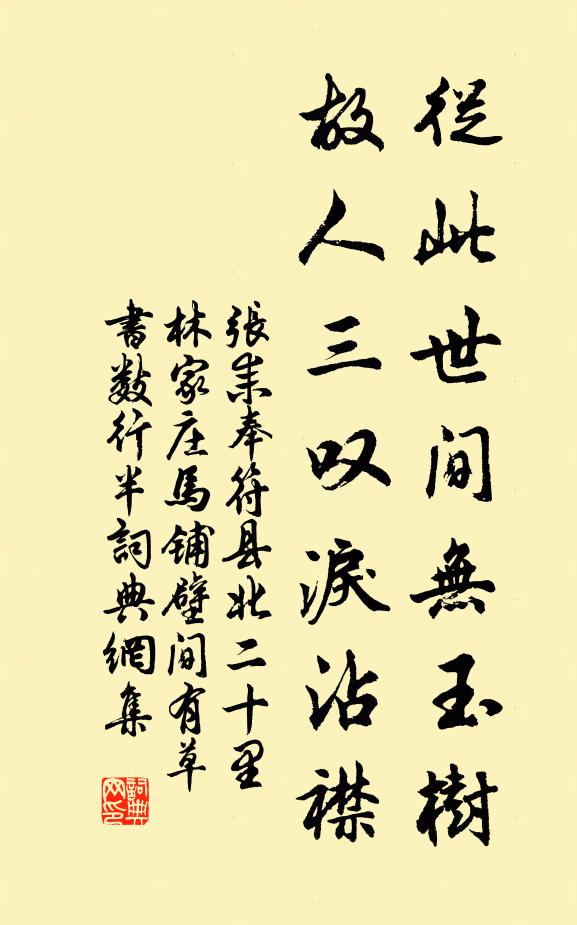 從此世间無玉樹
故人三叹淚沾襟
張耒奉符县北二十里
林家庄馬铺壁间有草
書数行半詞典網集
詞典网印